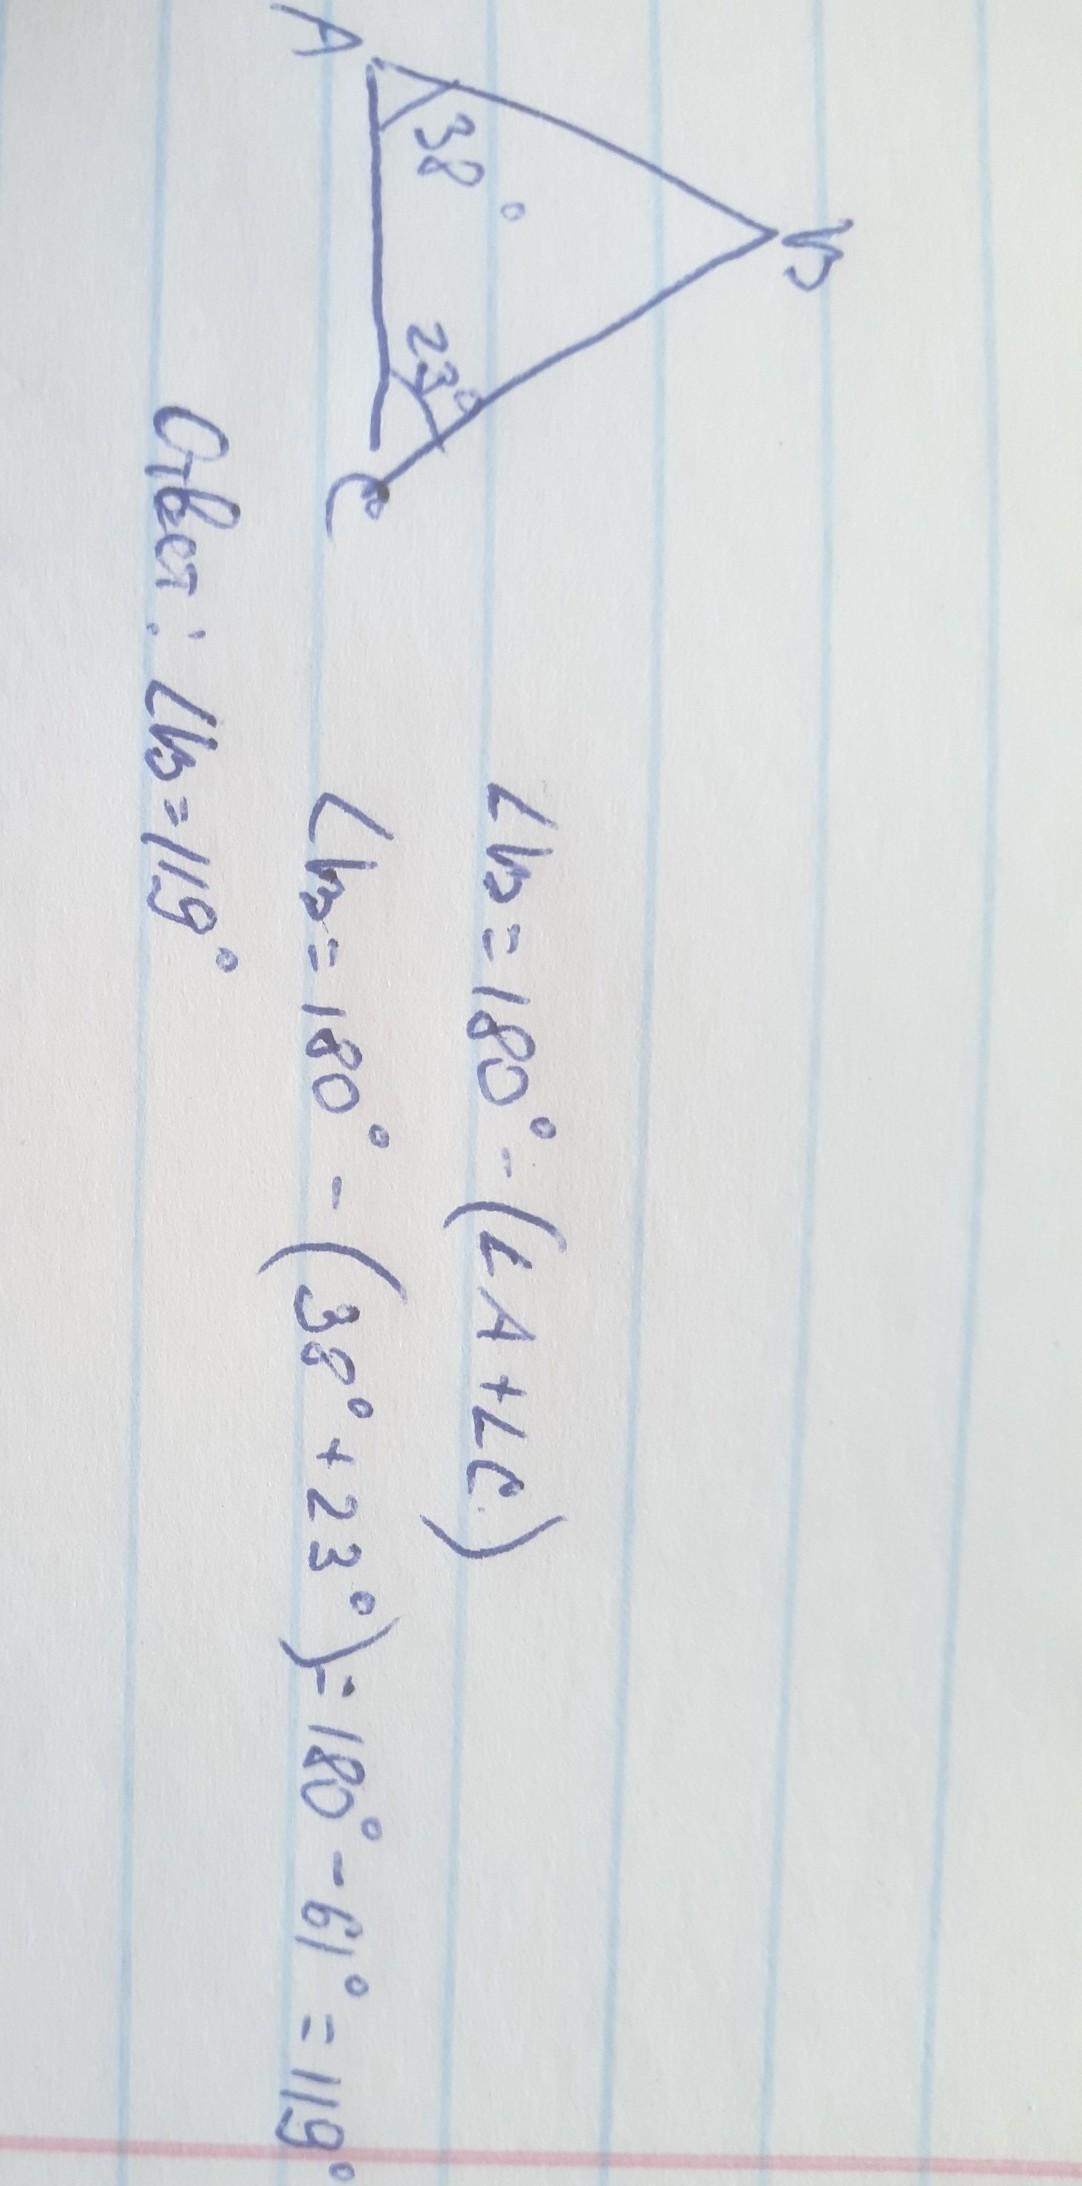 B
A
38°
23°
C
∠B = 180° - (∠A + ∠C)
∠B = 180° - (38° + 23°) = 180° - 61° = 119°
Ответ: ∠B = 119°